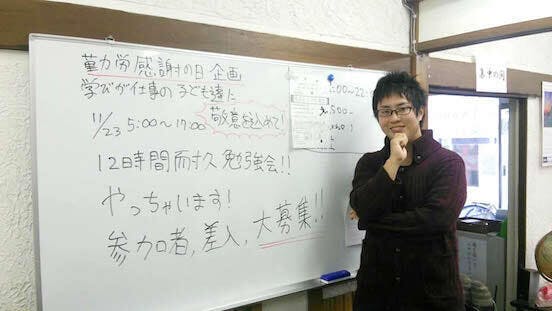 勤労感謝の日企画
学びが仕事の子ども達に
敬意を込めて!
11/23 5:00〜17:00
12時間耐久勉強会!!
やっちゃいます!
参加者,差入,大募集!!
:00〜22: